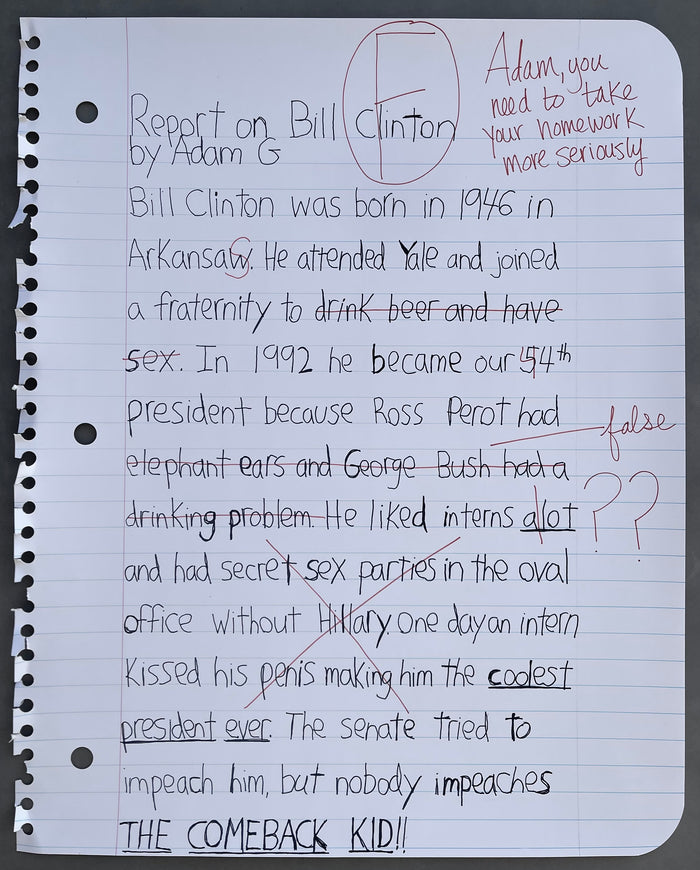 F
Adam, you
need to take
your homework
more seriously
Report on Bill Clinton
by Adam G
Bill Clinton was born in 1946 in
Arkansaw. He attended Yale and joined
a fraternity to drink beer and have
sex. In 1992 he became our 54th
president because Ross Perot had
false
elephant ears and George Bush had a
drinking problem. He liked interns alot
??
and had secret sex parties in the oval
office without Hillary. One day an intern
kissed his penis making him the coolest
president ever. The senate tried to
impeach him, but nobody impeaches
THE COMEBACK KID!!